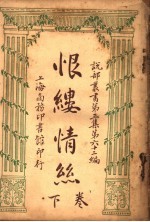 說部叢書第二集第六十三編
恨縷情絲
卷下
上海商務印書館印行